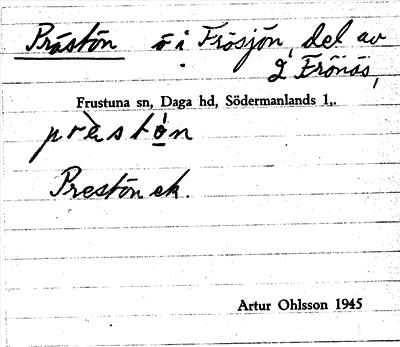 Prästön ö i Frösjön, del av
2 Frönäs,
Frustuna sn, Daga hd, Södermanlands l..
prèstó̱n
Prestön ek.
Artur Ohlsson 1945